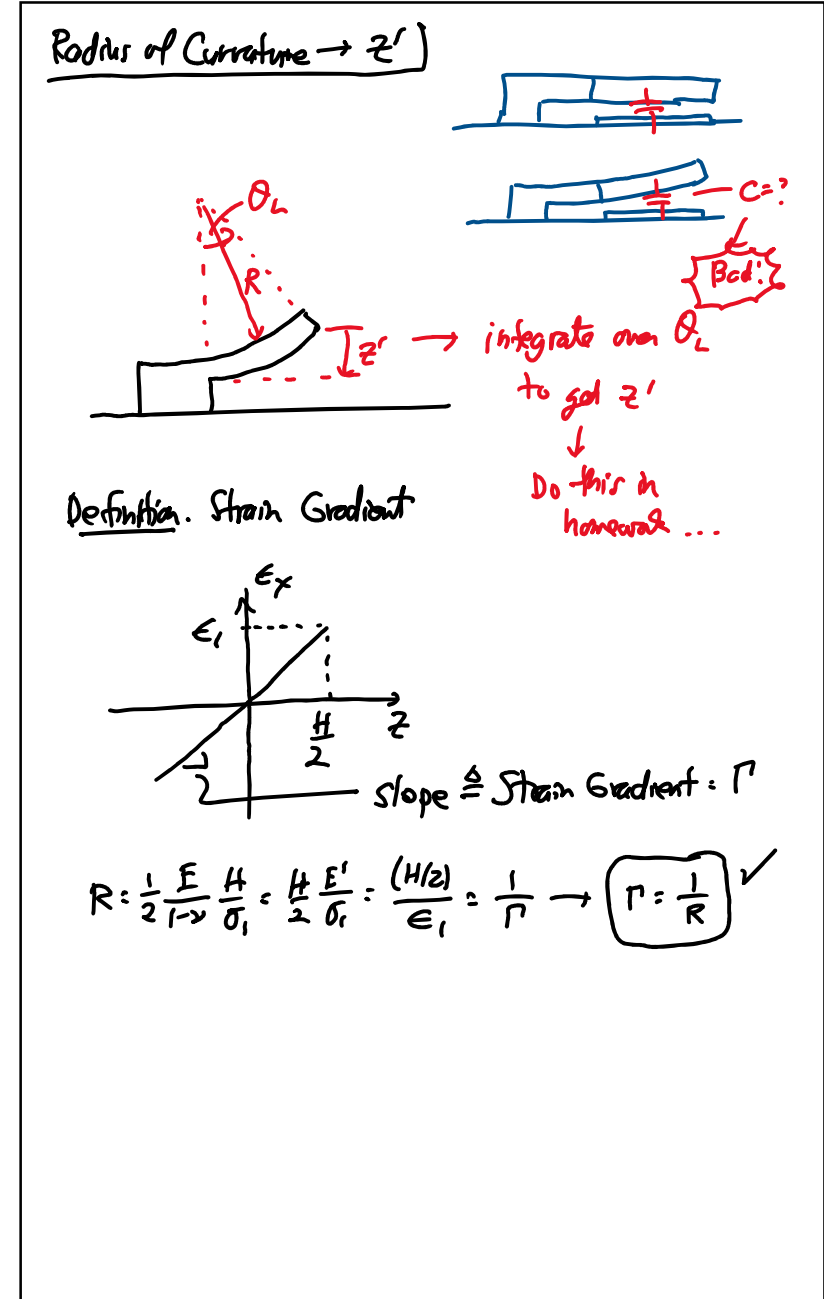 Radius of Curvature → z'
C=?
Bad!
θ_L
R
z' → integrate over θ_L
to get z'
↓
Do this in
homework ...
Definition. Strain Gradient
ε_x
ε_1
H/2
z
slope ≜ Strain Gradient = Γ
R = 1/2 E/(1-ν) H/σ_1 = H/2 E'/σ_1 = (H/2)/ε_1 = 1/Γ → Γ = 1/R ✓